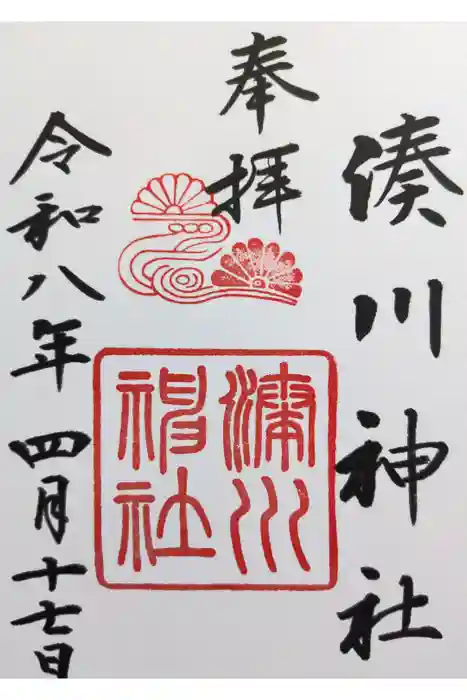 湊川神社
奉拝
令和八年四月十七日
湊川
神社